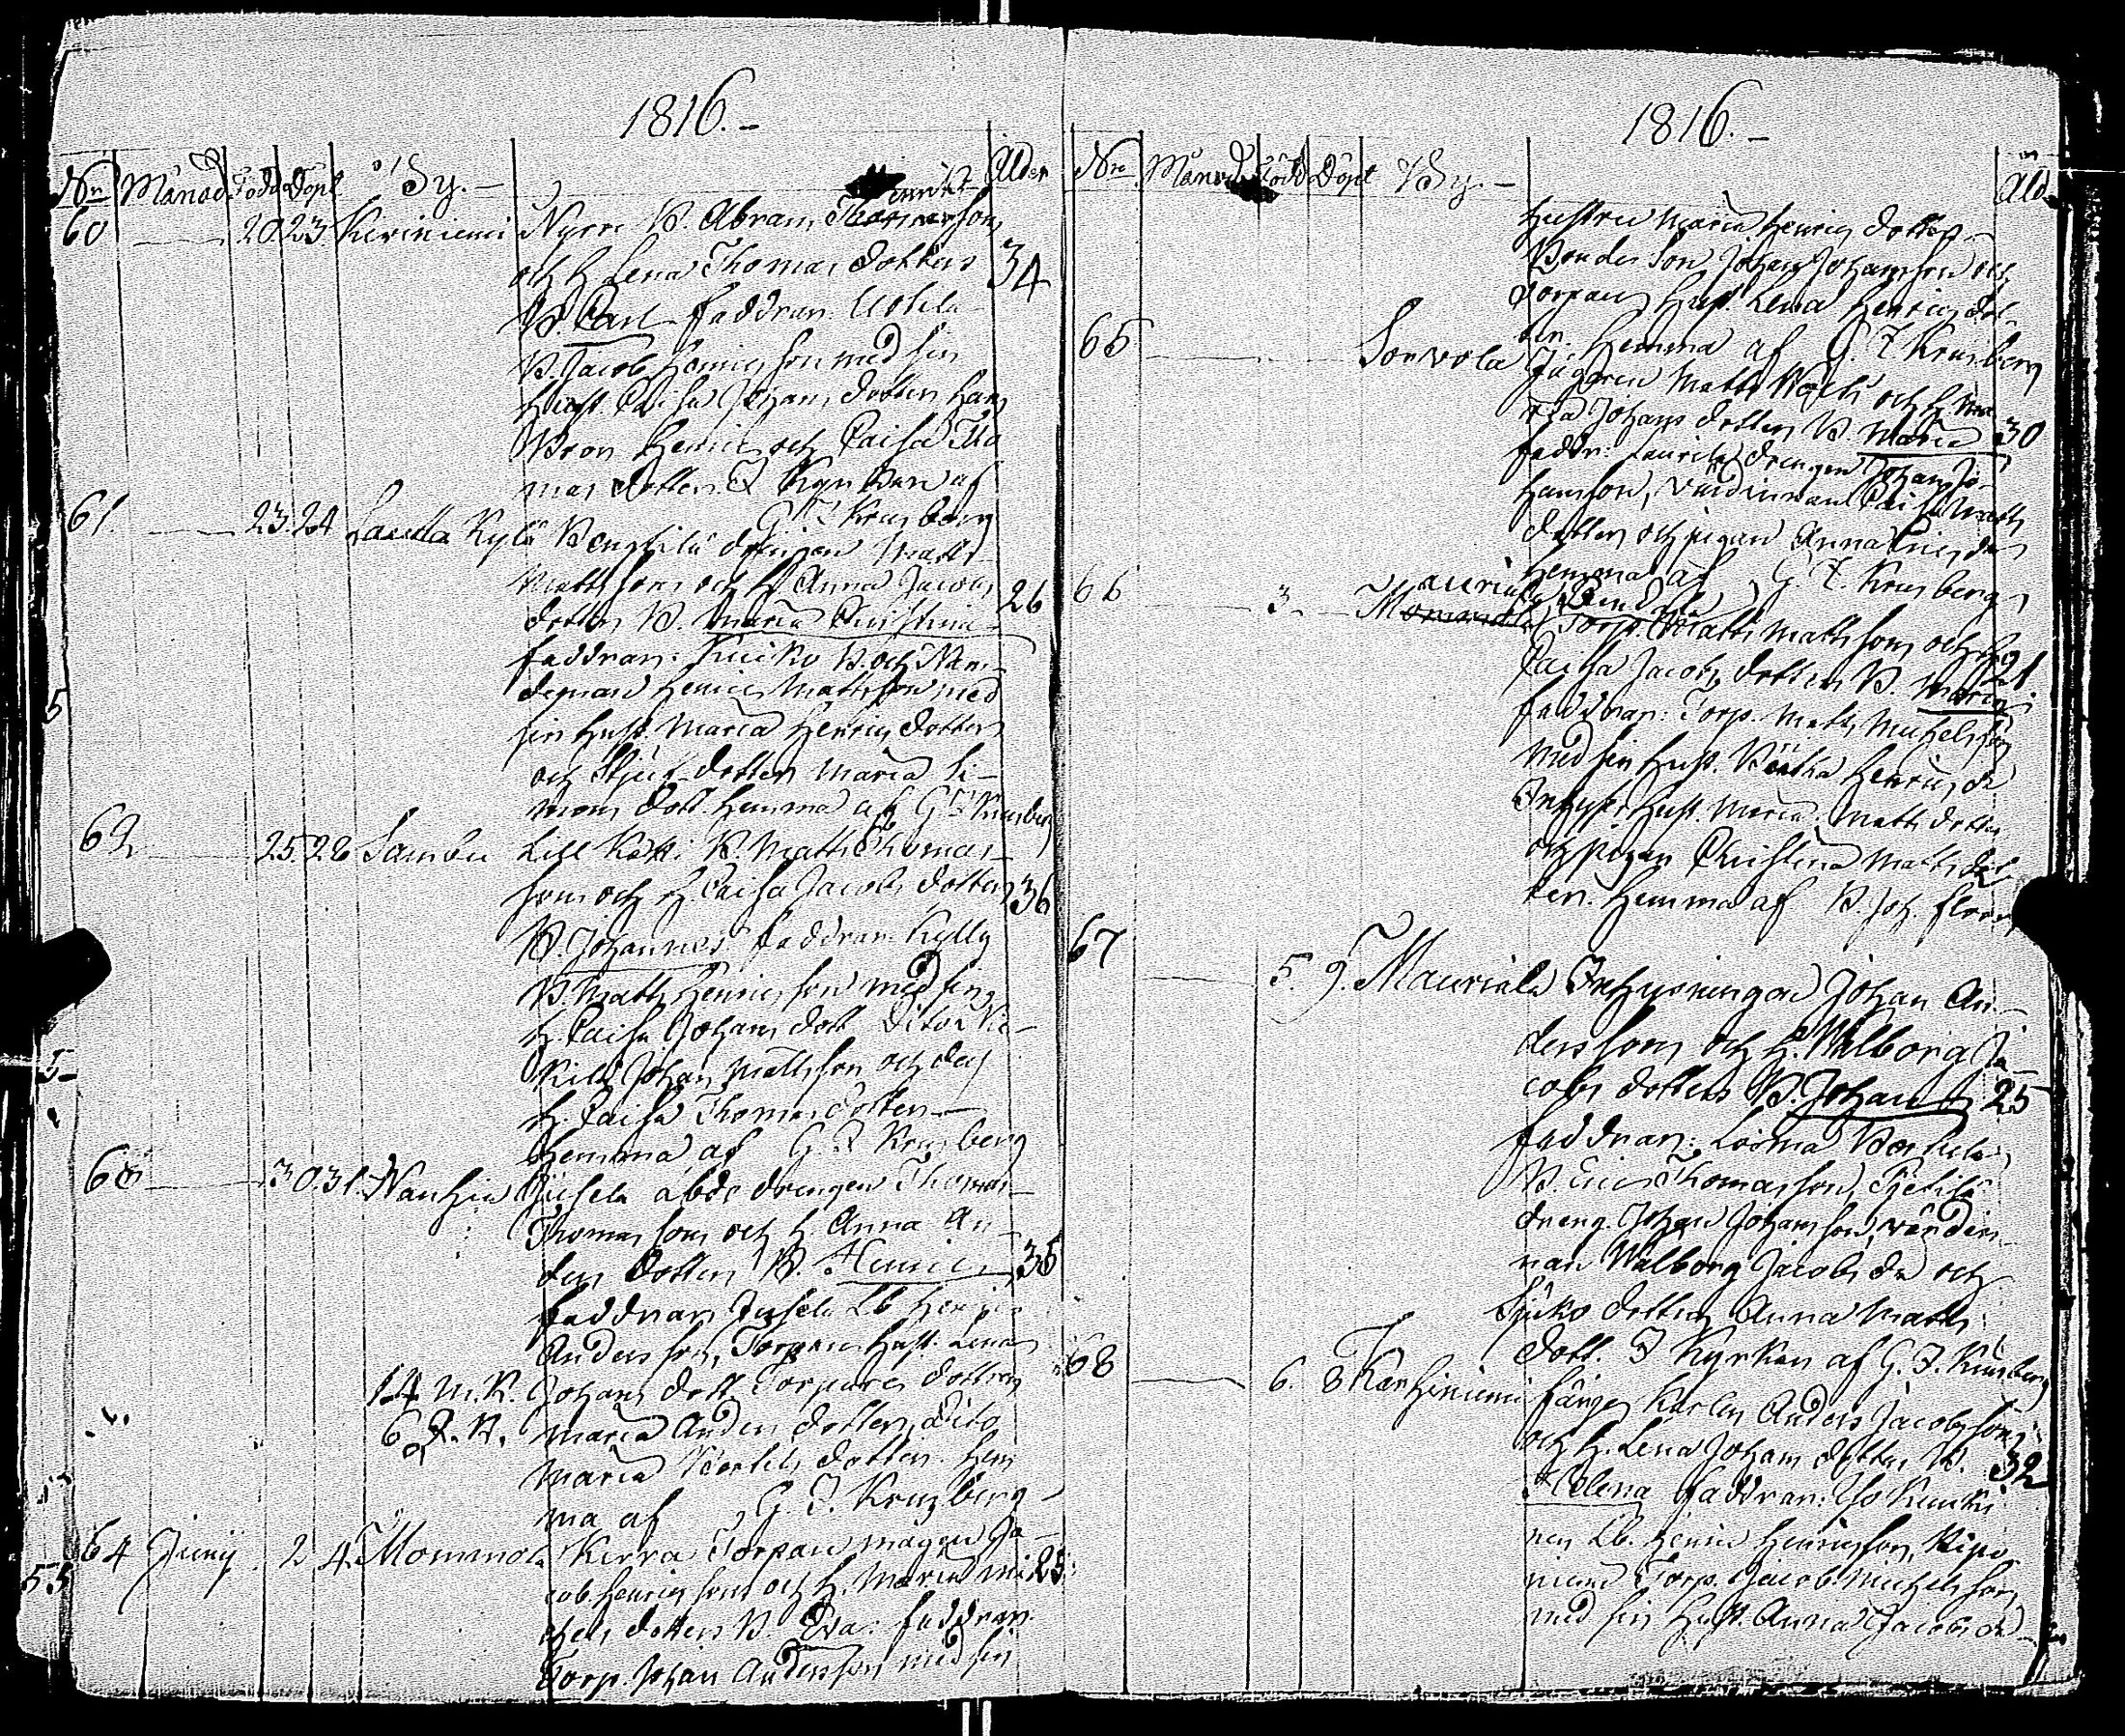 1816.-
Nr Månad Född Döpt By.- Ålder
60 20. 23. Kiviniemi Nyrri B. Abram Henricsson
och H. Lena Thomas dotters 34
B. Carl faddrar: Uotila
B. Jacob Henricsson med sin
Hust. Caisa Johans dotter hans
Bror Henric och Caisa Tho
mas dotter. I Kyrkan af
G. Z. Krusberg
61. 23. 24 Lautta Kylä drengen Matts
Mattsson och H. Anna Jacobs 26
dotters B. Maria Christina
faddrar: B. och Näm-
deman Henric Mattsson med
sin Hust. Maria Henrics dotter
och Stjuf-dotter Maria Si-
mons dott. hemma af G. Z. Krusberg
62 25. 28 Sambu Lill Kåtti B. Matts Thomas-
son och H. Caisa Jacobs dotters 36
B. Johannes faddrar: Kylly
B. Matts Henricsson med sin
H. Caisa Johans dott.
Johan Mattsson och des
H. Caisa Thomas dotter
Hemma af G. Z. Krusberg
63 30. 31. Nanhia Jusela Abdo drengen Thomas
Thomasson och H. Anna An-
ders dotters B. Henric 35
faddrar Jusela Lb. Henric
Andersson, Torpare Hust. Lena
14 M. K. Johans dott. Torpares dottren
6 Q. K. Maria Anders dotter, Dito
Maria Bertils dotter. Hem
ma af G. Z. Krusberg
64 Junij 2 4. Mommola Kirra Torpare magen Ja-
cob Henricsson och H. Maria Mi 25.
chels dotters B. Eva: faddrar
Torp. Johan Andersson med sin
1816.-
Nro Månad Född Döpt By.- Åld.
Hustru Maria Henrics dotter.
Bonde Son Johan Johansson och
Torpare Hust. Lena Henrics dot-
ter. Hemma af G. Z. Krusberg
65 Sorvola Jägaren Matts och H. Ma
ria Johans dotters B. Maria 30
faddr: Laurila drengen Johan Jo-
hansson, värdinnan Caisa Matts
dotter och pigan Anna Erics dr
Hemma af G. Z. Krusberg
66 3. Mauriala
Mommola Torp. Matts Mattsson och H. 21
Caisa Jacobs dotters B. Maria
faddrar: Torp. Matts Michelsson
med sin Hust. Bertha Henrics dr
Inhyses Hust. Maria Matts dotter
och pigan Christina Matts dot
ter. Hemma af B. Joh.
67 5. 9. Mauriala Inhysningen Johan An-
dersson och H. Walborg Ja-
cobs dotters B. Johan 25
faddrar: Loima
B. Eric Thomasson,
dreng. Johan Johansson, värdin-
nan Walborg Jacobs dr och
dotter Anna Matts
dott. I Kyrkan af G. Z. Krusberg
68 6. 8 Karhiniemi Färge Karlen Anders Jacobsson
och H. Lena Johans dotters B. 32
Helena faddrar:
nen Lb. Henric Henricsson,
niemi Torp. Jacob Michelsson
med sin Hust. Anna Jacobs dr